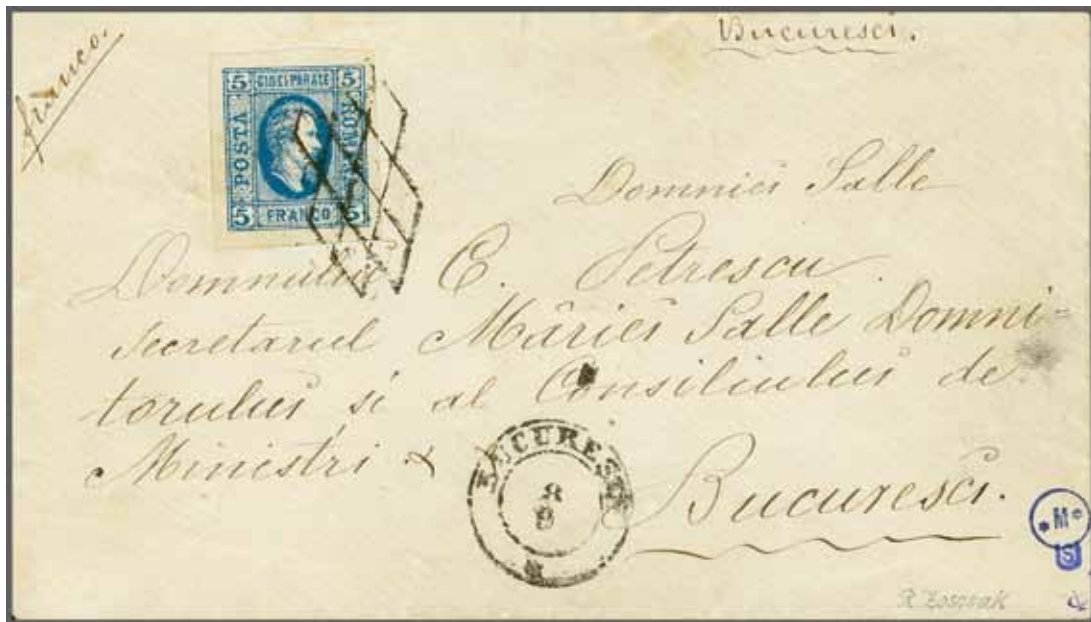 franco.
Bucuresci.
5 CINCI PARALE 5
POSTA
ROMANA
5 FRANCO 5
Domniei Salle
Domnului C. Petrescu.
secretarul Măriei Salle Domni-
torului și al Consiliului de
Ministri &
BUCURESCI
8
9
Bucuresci.
M
S